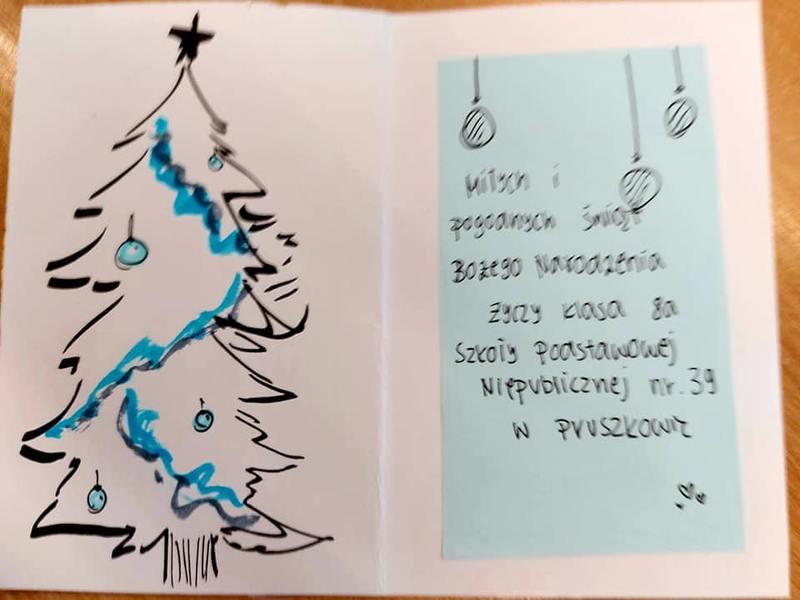 Miłych i
pogodnych świąt
Bożego Narodzenia
życzy klasa 8a
Szkoły Podstawowej
Niepublicznej nr. 39
w Pruszkowie